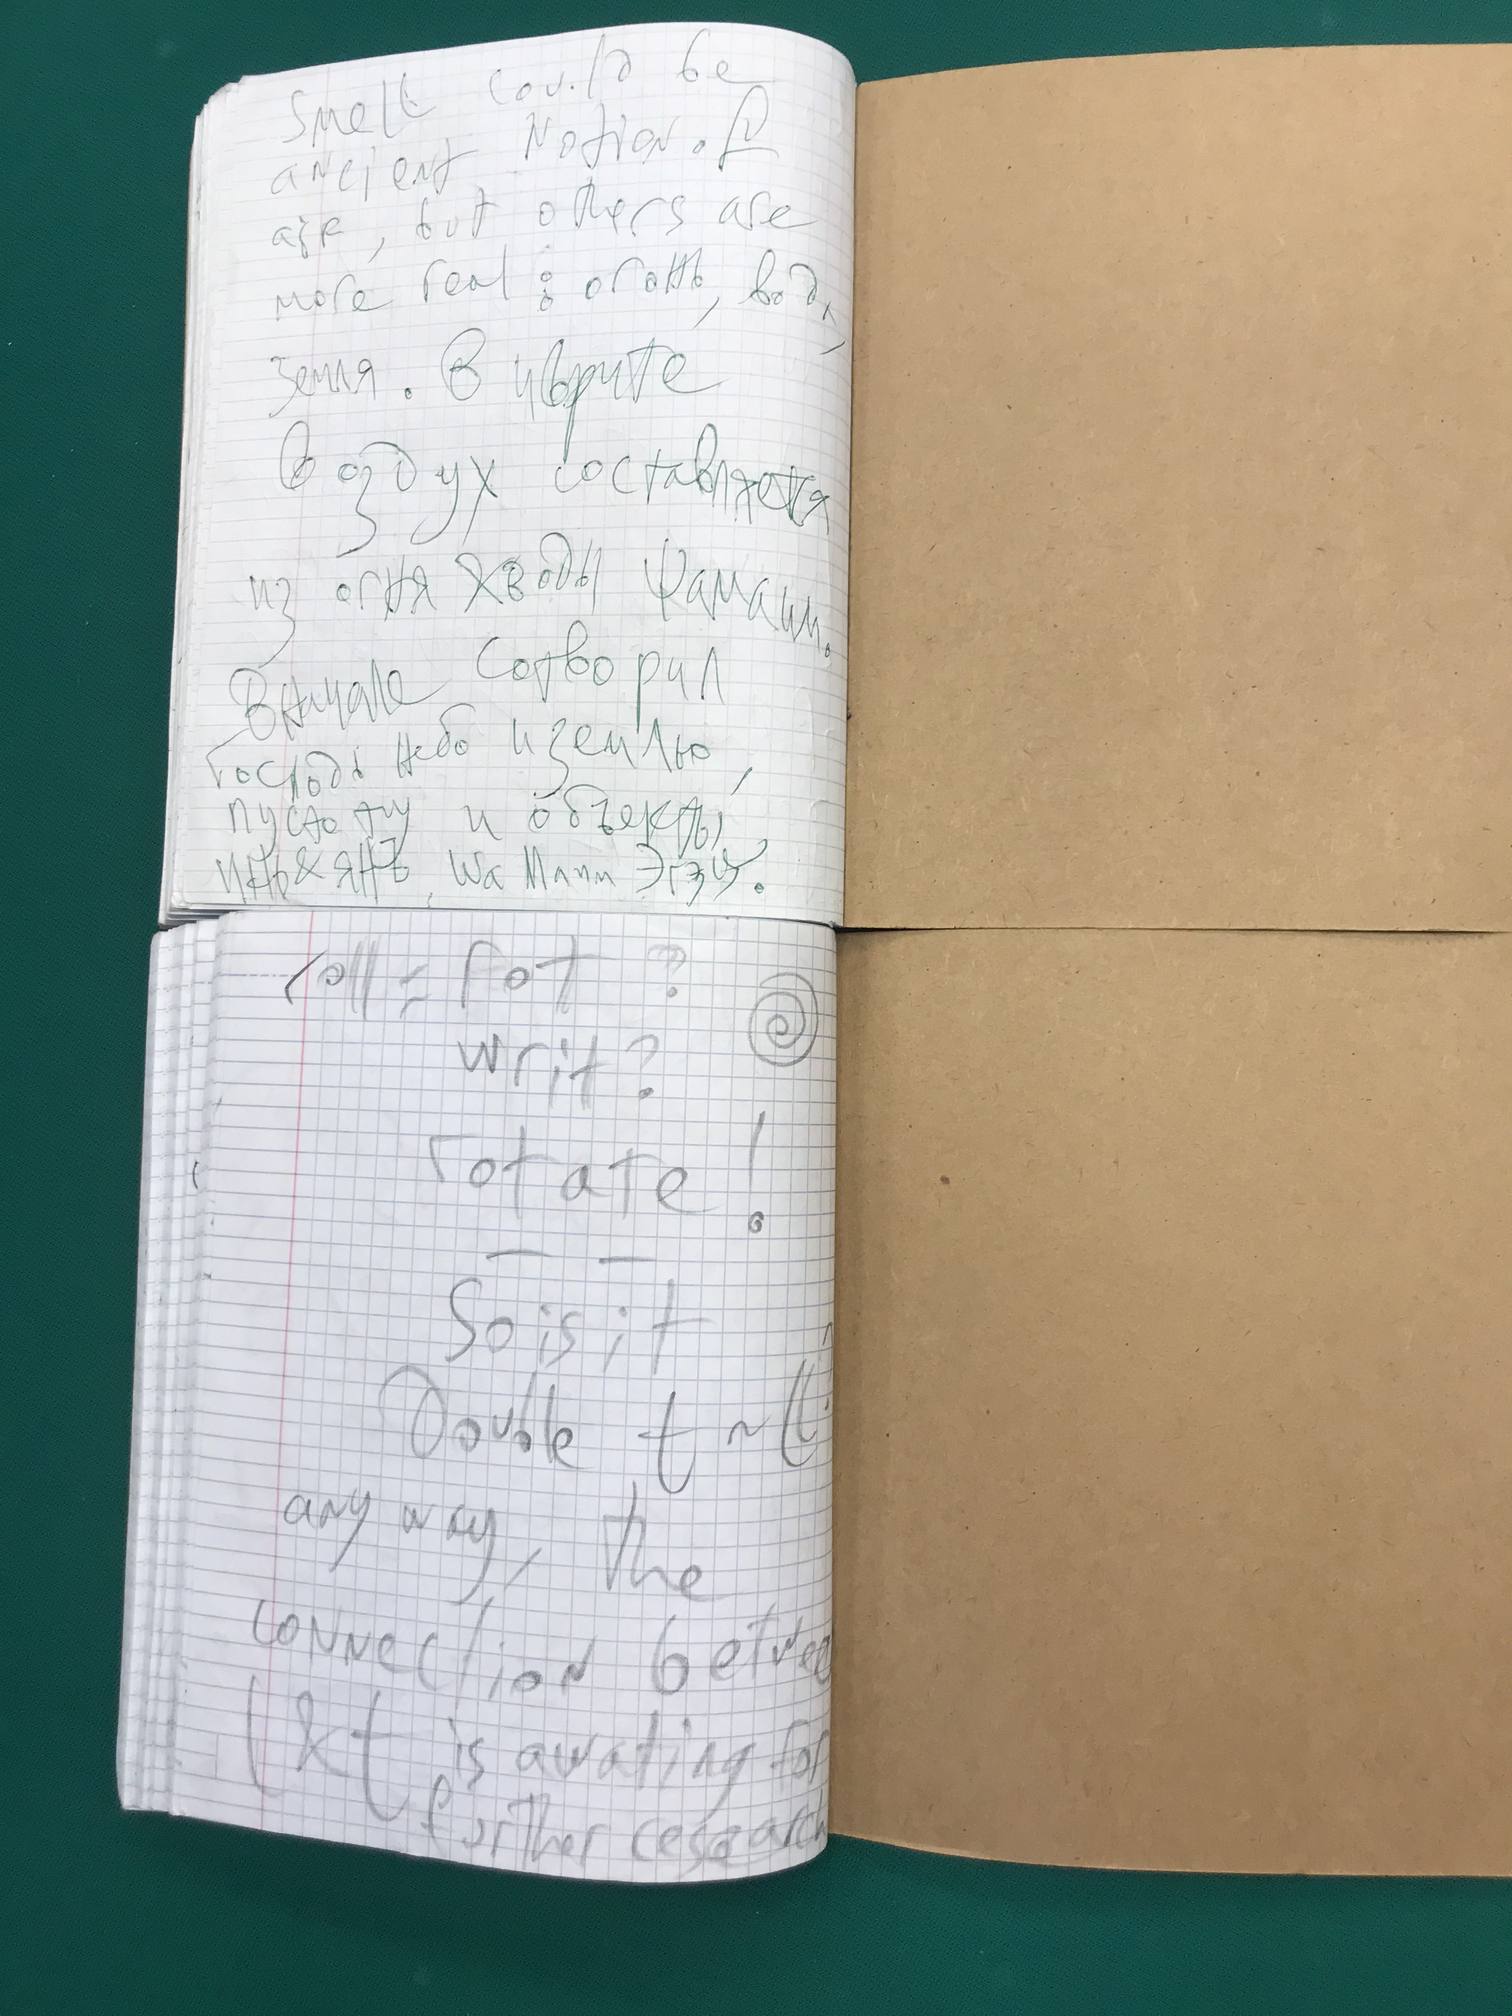 Smell could be
ancient Notion.
air, but others are
more real: огонь, вода,
земля. В иврите
Воздух составляется
из огня & воды Шамаим.
Вначале сотворил
Господь небо и землю,
пустоту и объекты,
инь & янь,
roll = rot?
writ?
rotate!
So is it
Double t ~ ll?
any way, the
connection betwee
l & t is awating for
further research